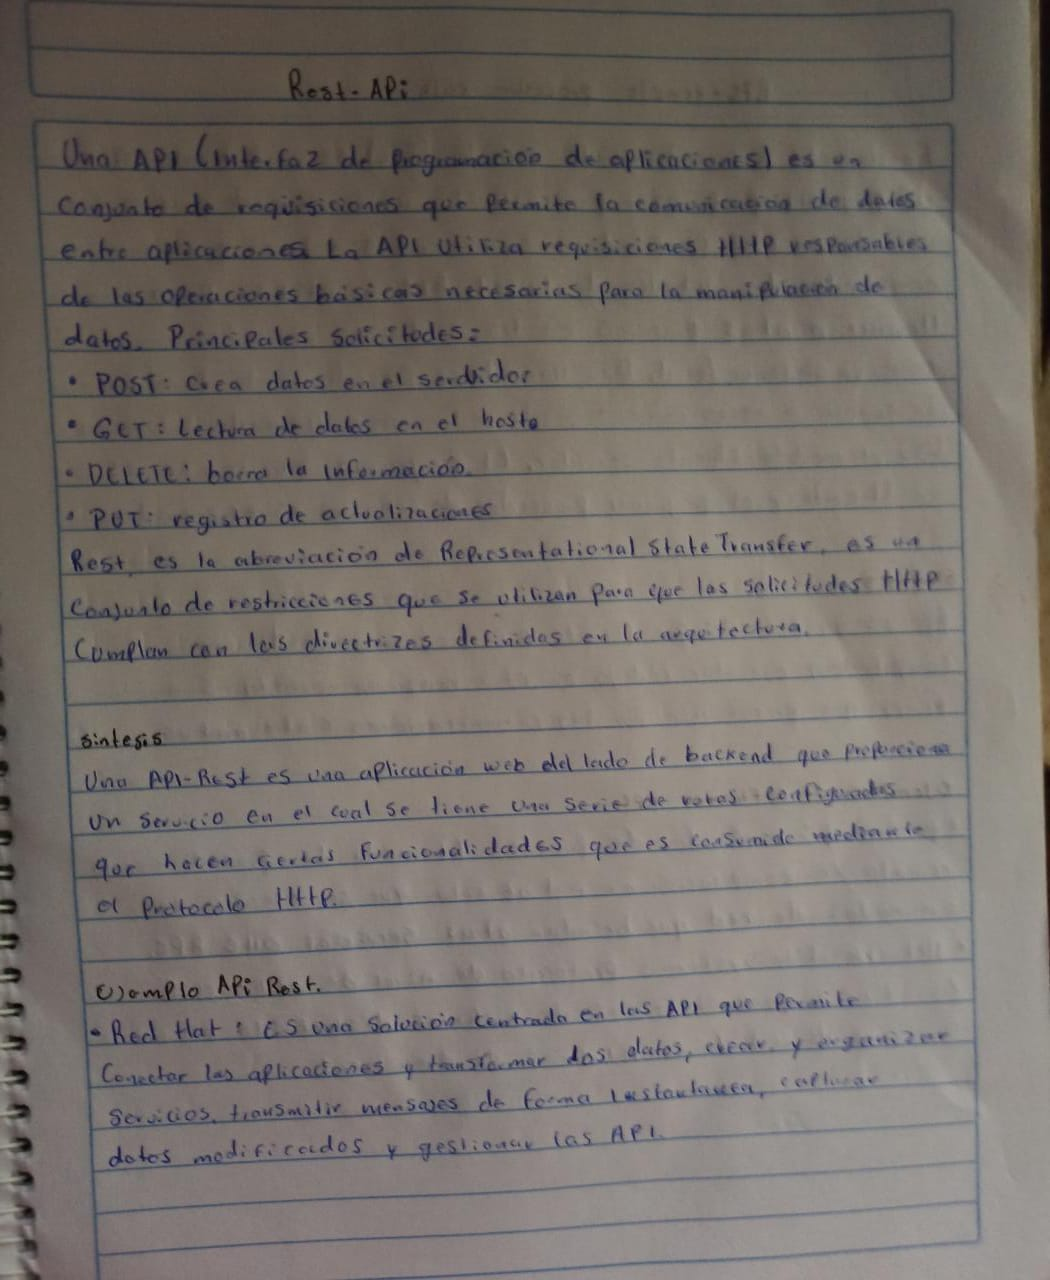 Rest-APi
Una API (Interfaz de Programacion de aplicaciones) es un
Conjunto de requisiciones que Permite la comunicación de datos
entre aplicaciones La API Utiliza requisiciones HttP responsables
de las operaciones básicas necesarias para la manipulación de
datos. Principales Solicitudes:
• POST: Crea datos en el servidor
• GET: Lectura de datos en el hoste
• DELETE: borra la información
• PUT: registro de actualizaciones
Rest, es la abreviación de Representational State Transfer, es un
Conjunto de restricciones que se utilizan para que las solicitudes HttP
Cumplan con las directrizes definidas en la
sintesis
Una API-Rest es una aplicación web del lado de backend que proporciona
un servicio en el cual se tiene una serie de rutas configuradas
que hacen ciertas Funcionalidades que es consumido mediante
el Protocolo HttP.
Ejemplo APi Rest.
• Red Hat: ES una Solución centrada en las API que Permite
Conectar las aplicaciones y transformar dos datos, crear y organizar
Servicios, transmitir mensajes de forma instantanea, capturar
datos modificados y gestionar las API.